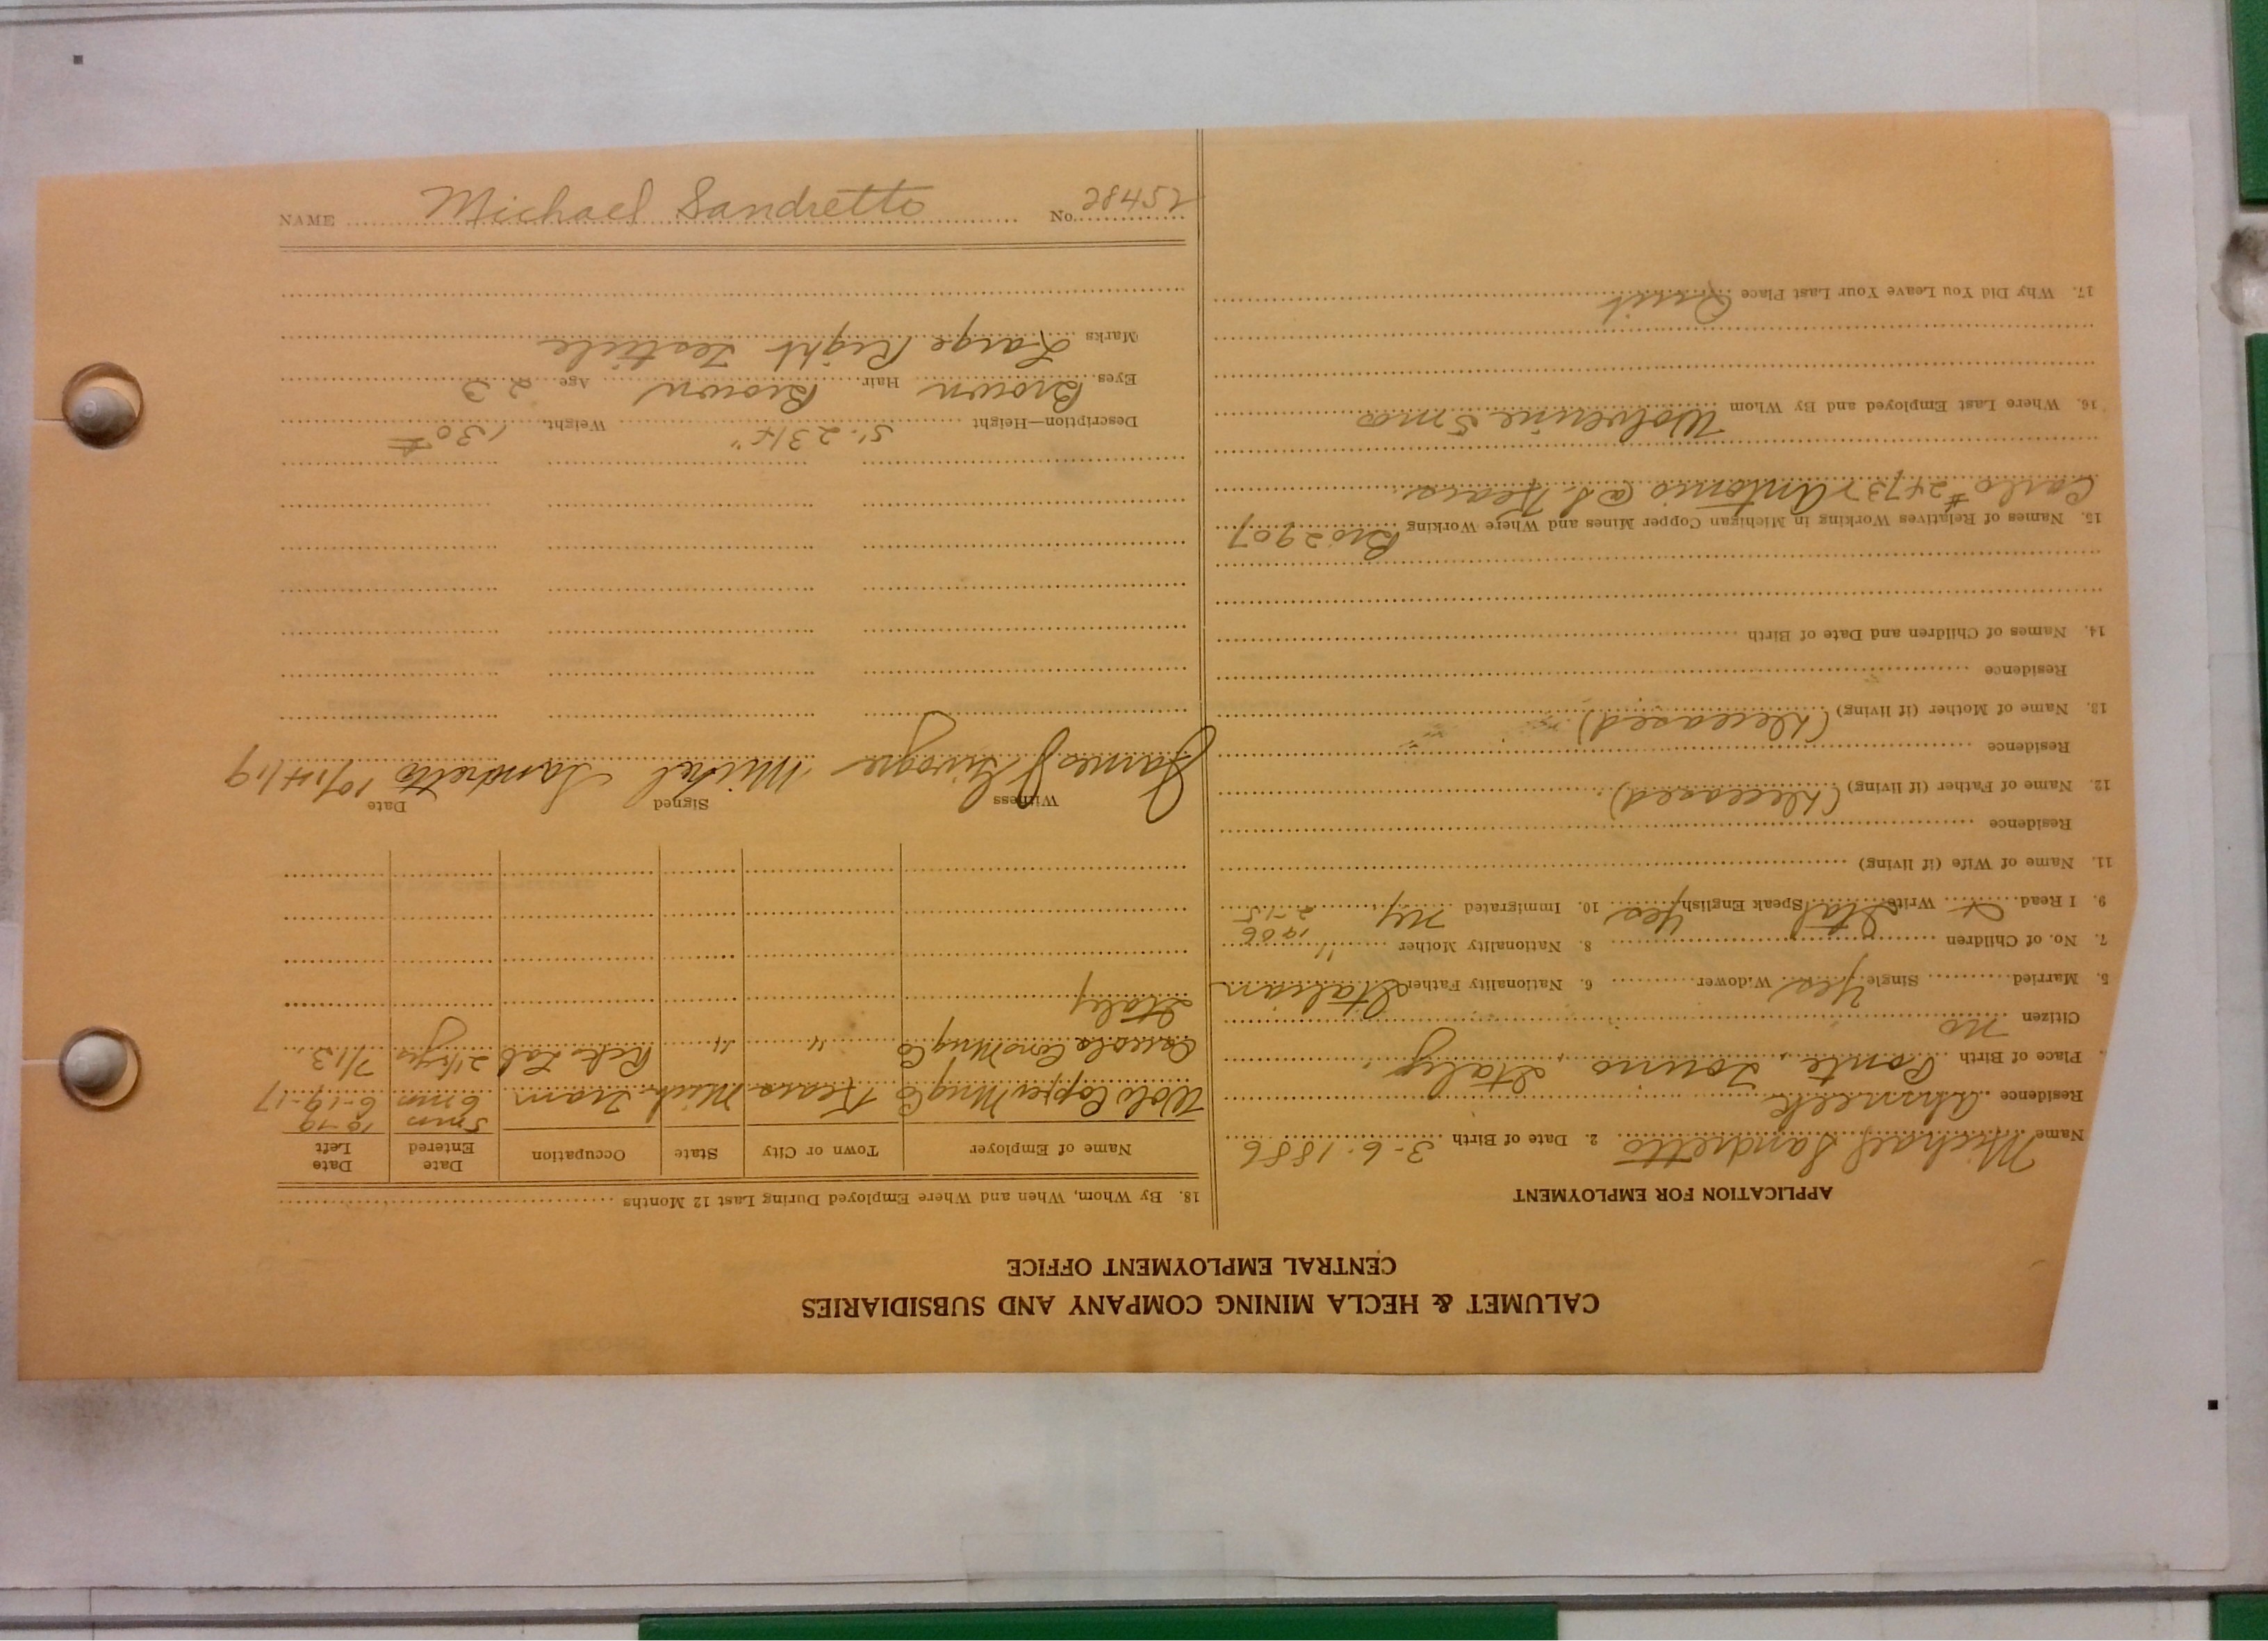 CALUMET & HECLA MINING COMPANY AND SUBSIDIARIES
CENTRAL EMPLOYMENT OFFICE
APPLICATION FOR EMPLOYMENT
Name Michael Sandretto 2. Date of Birth 3-6-1886
Residence Ahmeek
Place of Birth Ponte, Torino, Italy
Citizen no
5. Married Single Yes Widower 6. Nationality Father Italian
7. No. of Children 8. Nationality Mother "
9. I Read x Write Ital Speak English Yes 10. Immigrated NY 1906 2-15
11. Name of Wife (if living)
Residence
12. Name of Father (if living) (Deceased)
Residence
13. Name of Mother (if living) (Deceased)
Residence
14. Names of Children and Date of Birth
15. Names of Relatives Working in Michigan Copper Mines and Where Working Bro 2907
Carlo #24737 Antonio @ S. Kears.
16. Where Last Employed and By Whom Wolverine 5 mos
17. Why Did You Leave Your Last Place Quit
18. By Whom, When and Where Employed During Last 12 Months
Name of Employer Town or City State Occupation Date Entered Date Left
5 mo 10-19
Wolv Copper Mng Co Kears Mich Tram 6 mo 6-19-17
Osceola Cons Mng Co " " Rck Lab 2½ yrs 7/13
Italy
Witness Signed Date
James J Michel Sandretto 10/14/19
Description—Height 5'. 2 3/4" Weight 130 #
Eyes Brown Hair Brown Age 23
Marks Large Right Testicle
NAME Michael Sandretto No. 28452